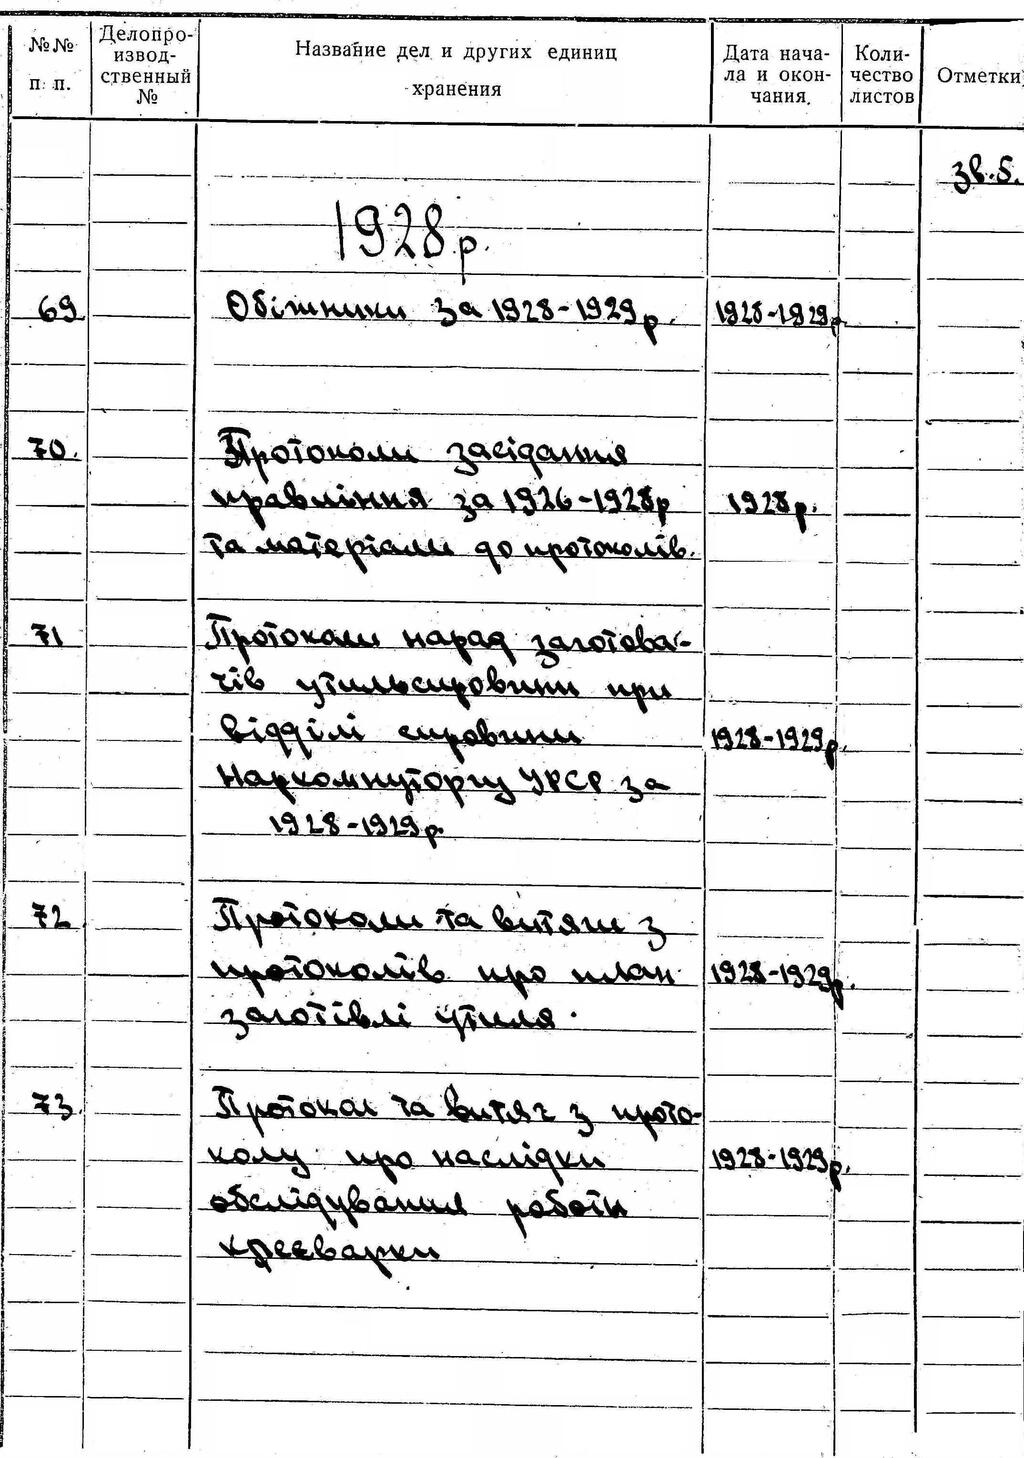 №№ п. п.
Делопро-
извод-
ственный
№
Название дел и других единиц
хранения
Дата нача-
ла и окон-
чания.
Коли-
чество
листов
Отметки
зв. 5.
1928 р.
69 Обіжники за 1928-1929 р. 1928-1929р
70. Протоколи засідання
правління за 1926-1928р 1928 р.
та матеріали до протоколів.
71 Протоколи нарад заготова-
чів утильсировини при
відділі сировини 1928-1929р.
Наркомнуторгу УРСР за
1928-1929 р.
72 Протоколи та витяги з
протоколів про план 1928-1929р.
заготівлі утиля.
73. Протокол та витяг з прото-
колу про наслідки 1928-1929р.
обслідування роботи
клееварки